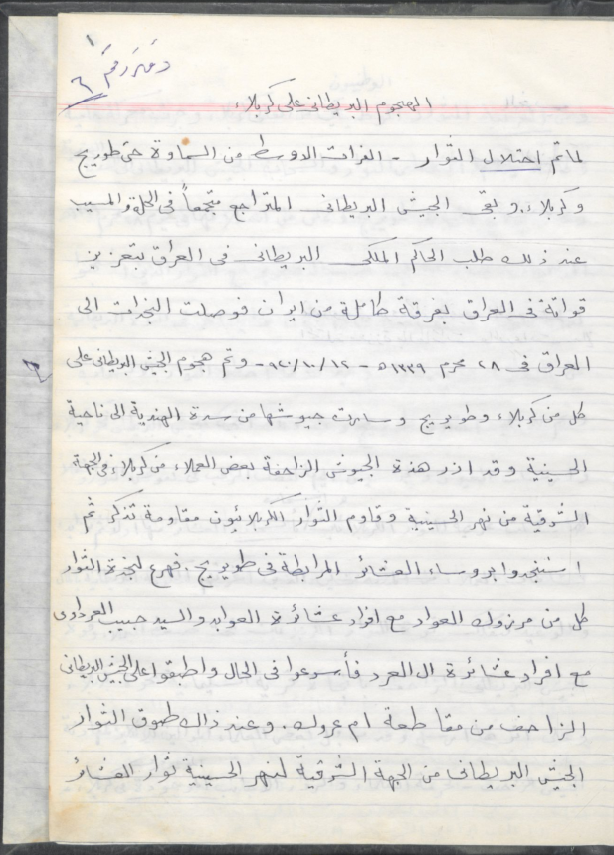 دفتر رقم ١
٦
الهجوم البريطاني على كربلاء
لما تم احتلال الثوار - الفرات الاوسط من السماوة حتى طويريج
وكربلاء. وبقى الجيش البريطاني المتراجع متجمعاً في الحلة والمسيب
عند ذلك طلب الحاكم الملكي البريطاني في العراق بتعزيز
قواته في العراق بفرقة كاملة من ايران فوصلت النجدات الى
العراق في ٢٨ محرم ١٣٣٩ ه - ١٢/١٠/٩٢٠ - وتم هجوم الجيش البريطاني على
كل من كربلاء وطويريج وسارت جيوشها من سدة الهندية الى ناحية
الحسينية وقد ازر هذة الجيوش الزاحفة بعض العملاء من كربلاء في الجهة
الشرقية من نهر الحسينية وقاوم الثوار الكربلائيون مقاومة تذكر ثم
استنجدوا بروساء العشائر المرابطة في طويريج. فهرع لنجدة الثوار
كل من مرزوك العواد مع افراد عشائرة العوابد والسيد حبيب العردادى
مع افراد عشائرة ال العرد فأسرعوا في الحال واطبقوا على الجيش البريطاني
الزاحف من مقاطعة ام عروك. وعند ذالك طوق الثوار
الجيش البريطاني من الجهة الشرقية لنهر الحسينية ثوار العشائر